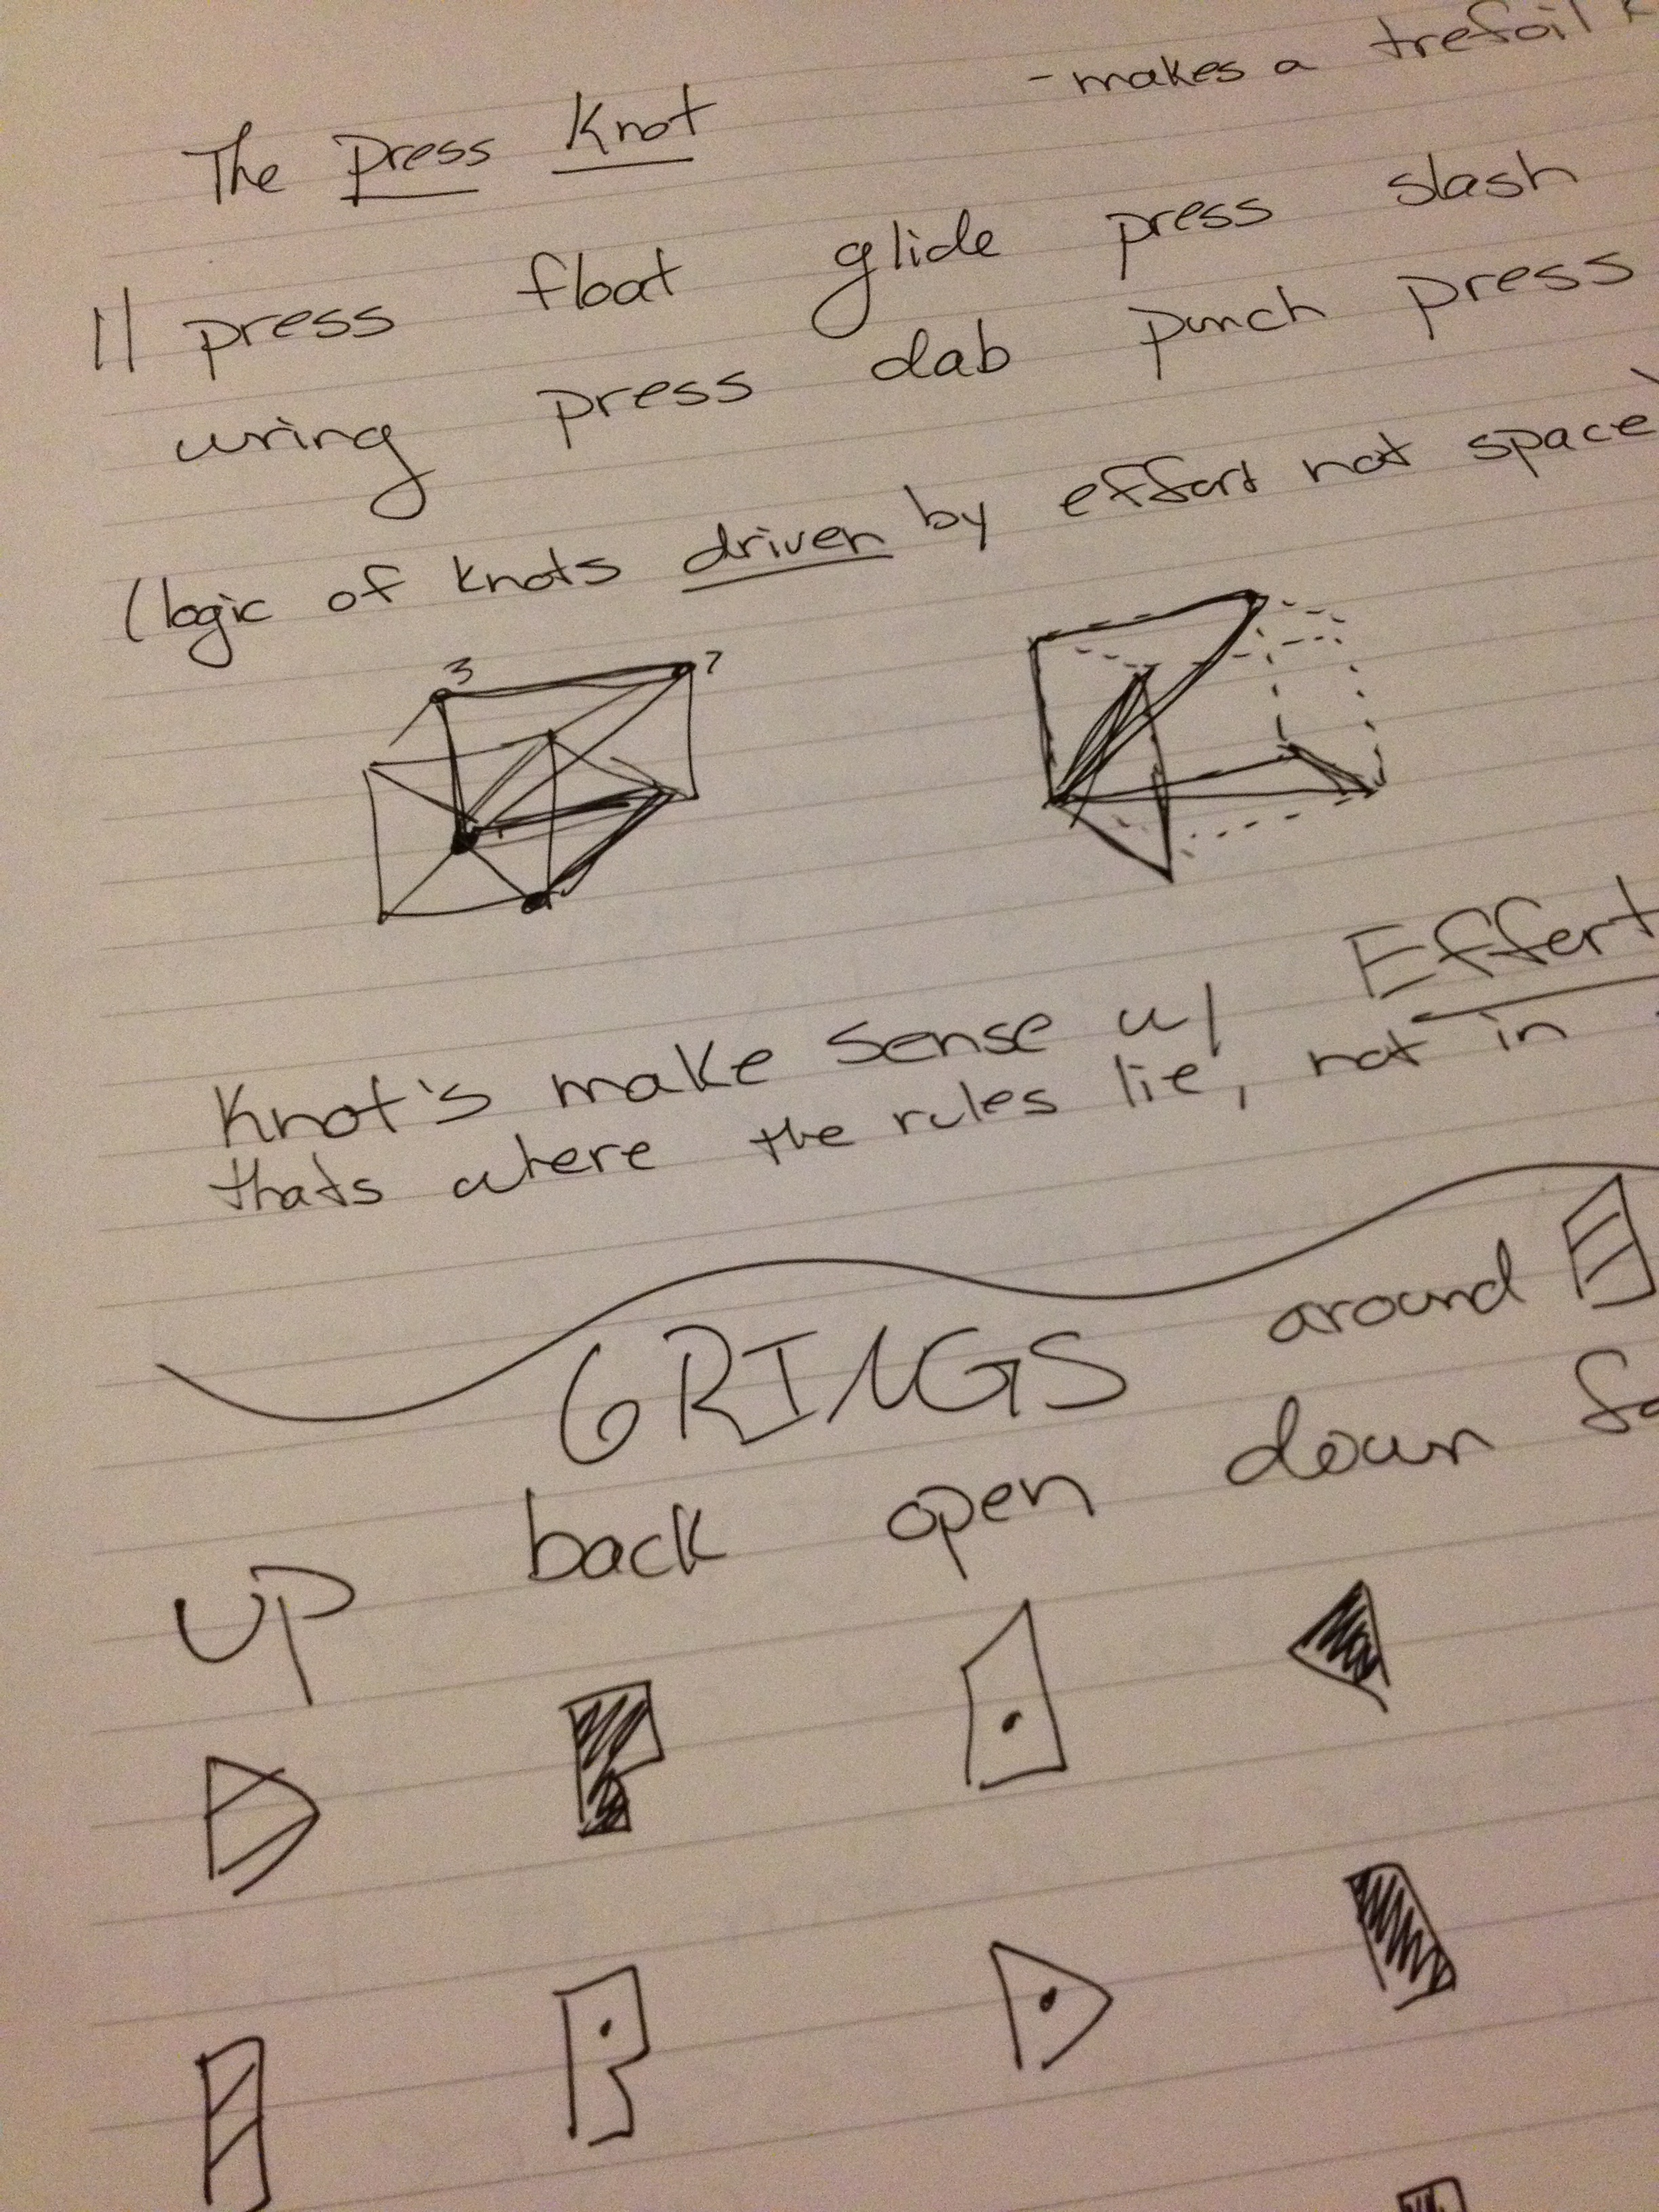 The Press Knot
- makes a trefoil
|| press float glide press slash
wring press dab punch press
(logic of knots driven by effort not space)
3 7
Knot's make sense w/ Effort
thats where the rules lie, not in
6 RINGS around
up back open down